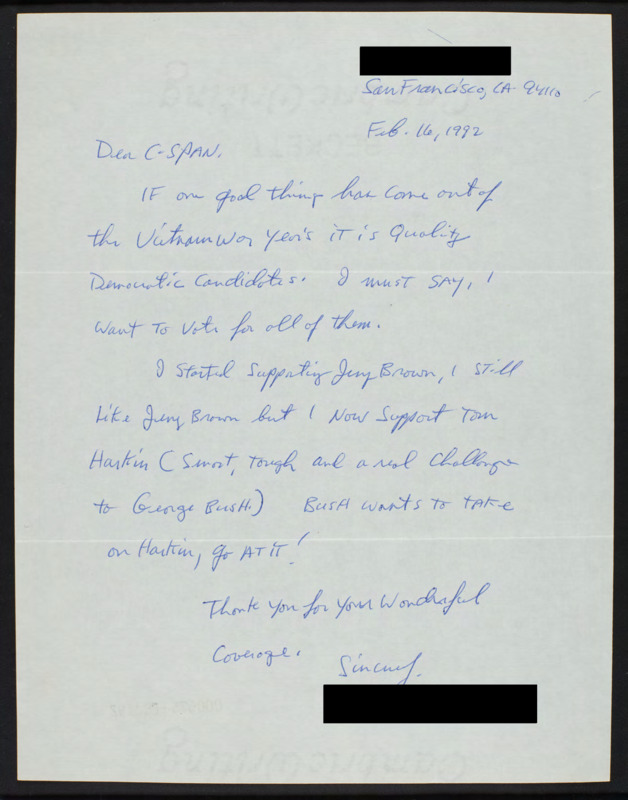 San Francisco, CA 94110
Feb. 16, 1992
Dear C-SPAN.
IF one good thing has come out of
the Vietnam War Years iT is Quality
Democratic Candidates. I must SAY, I
want To Vote for all of them.
I Started Supporting Jerry Brown, I still
Like Jerry Brown but I Now Support Tom
Harkin (Smart, Tough and a real Challenge
to George Bush.) Bush wants to take
on Harkin, go AT iT!
Thank you for your Wonderful
Coverage.
Sincerely.